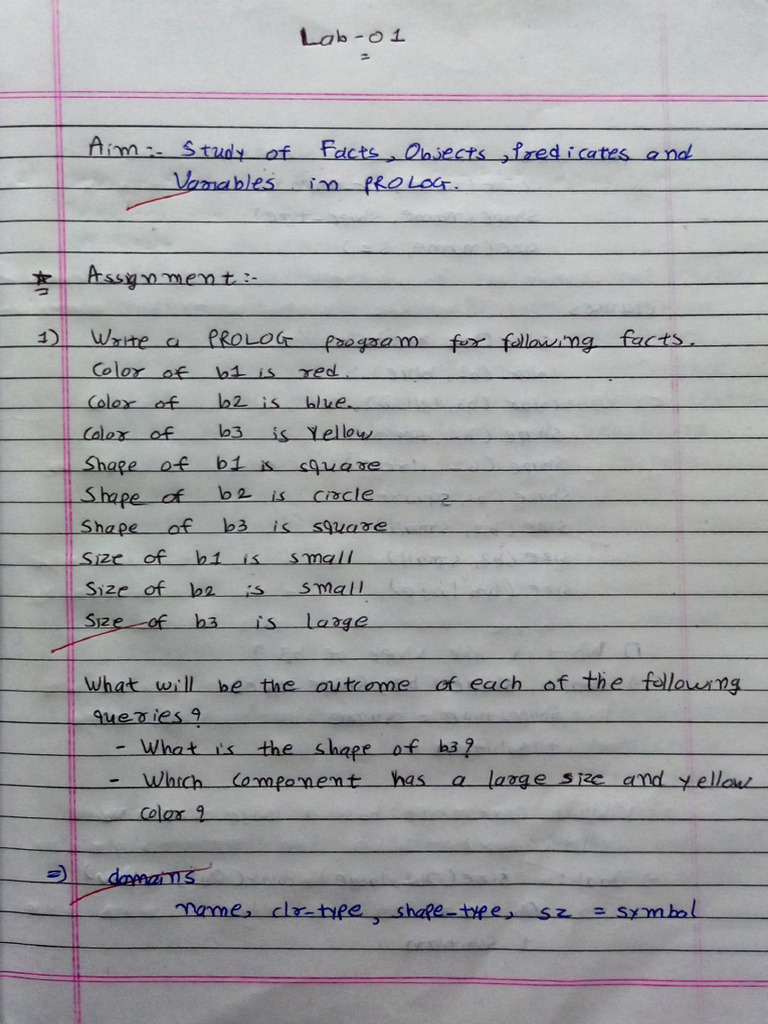 Lab-01
Aim:- Study of Facts, Objects, Predicates and
Variables in PROLOG.
* Assignment:-
1) Write a PROLOG program for following facts.
Color of b1 is red.
Color of b2 is blue.
Color of b3 is Yellow
Shape of b1 is square
Shape of b2 is circle
Shape of b3 is square
Size of b1 is small
Size of b2 is small
Size of b3 is large
What will be the outcome of each of the following
queries?
- What is the shape of b3?
- Which component has a large size and yellow
color?
=) domains
name, clr-type, shape-type, sz = symbol